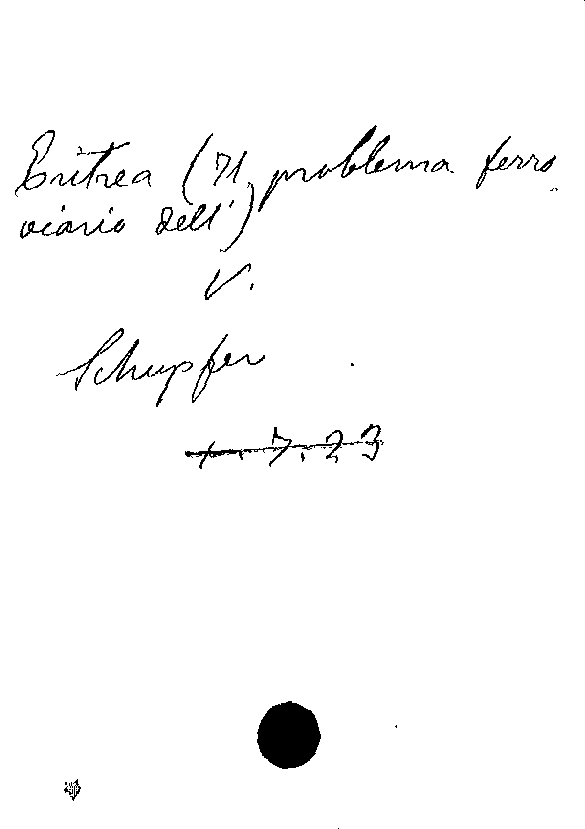 Eritrea (Il problema ferro
viario dell')
V.
Schupfer
x. 7. 23